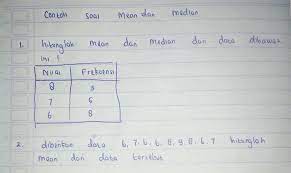 Contoh soal mean dan median
1. hitunglah mean dan median dari data dibawah
ini !
Nilai Frekuensi
8
7 6
6 8
2. diberikan data 6, 7, 6, 6, 8, 9, 8, 6, 7 hitunglah
mean dari data tersebut